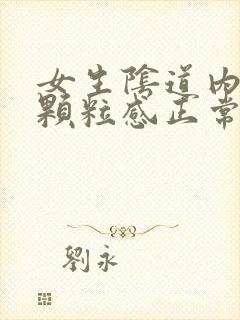 女生陰道內
顆粒感正常
劉永